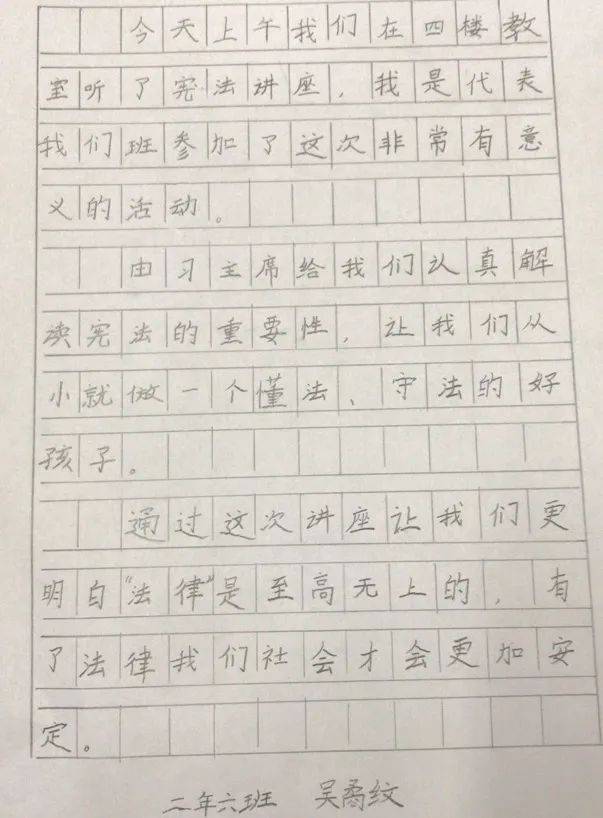 今天上午我们在四楼教
室听了宪法讲座，我是代表
我们班参加了这次非常有意
义的活动。
由习主席给我们认真解
读宪法的重要性，让我们从
小就做一个懂法、守法的好
孩子。
通过这次讲座让我们更
明白“法律”是至高无上的，有
了法律我们社会才会更加安
定。
二年六班 吴矞纹